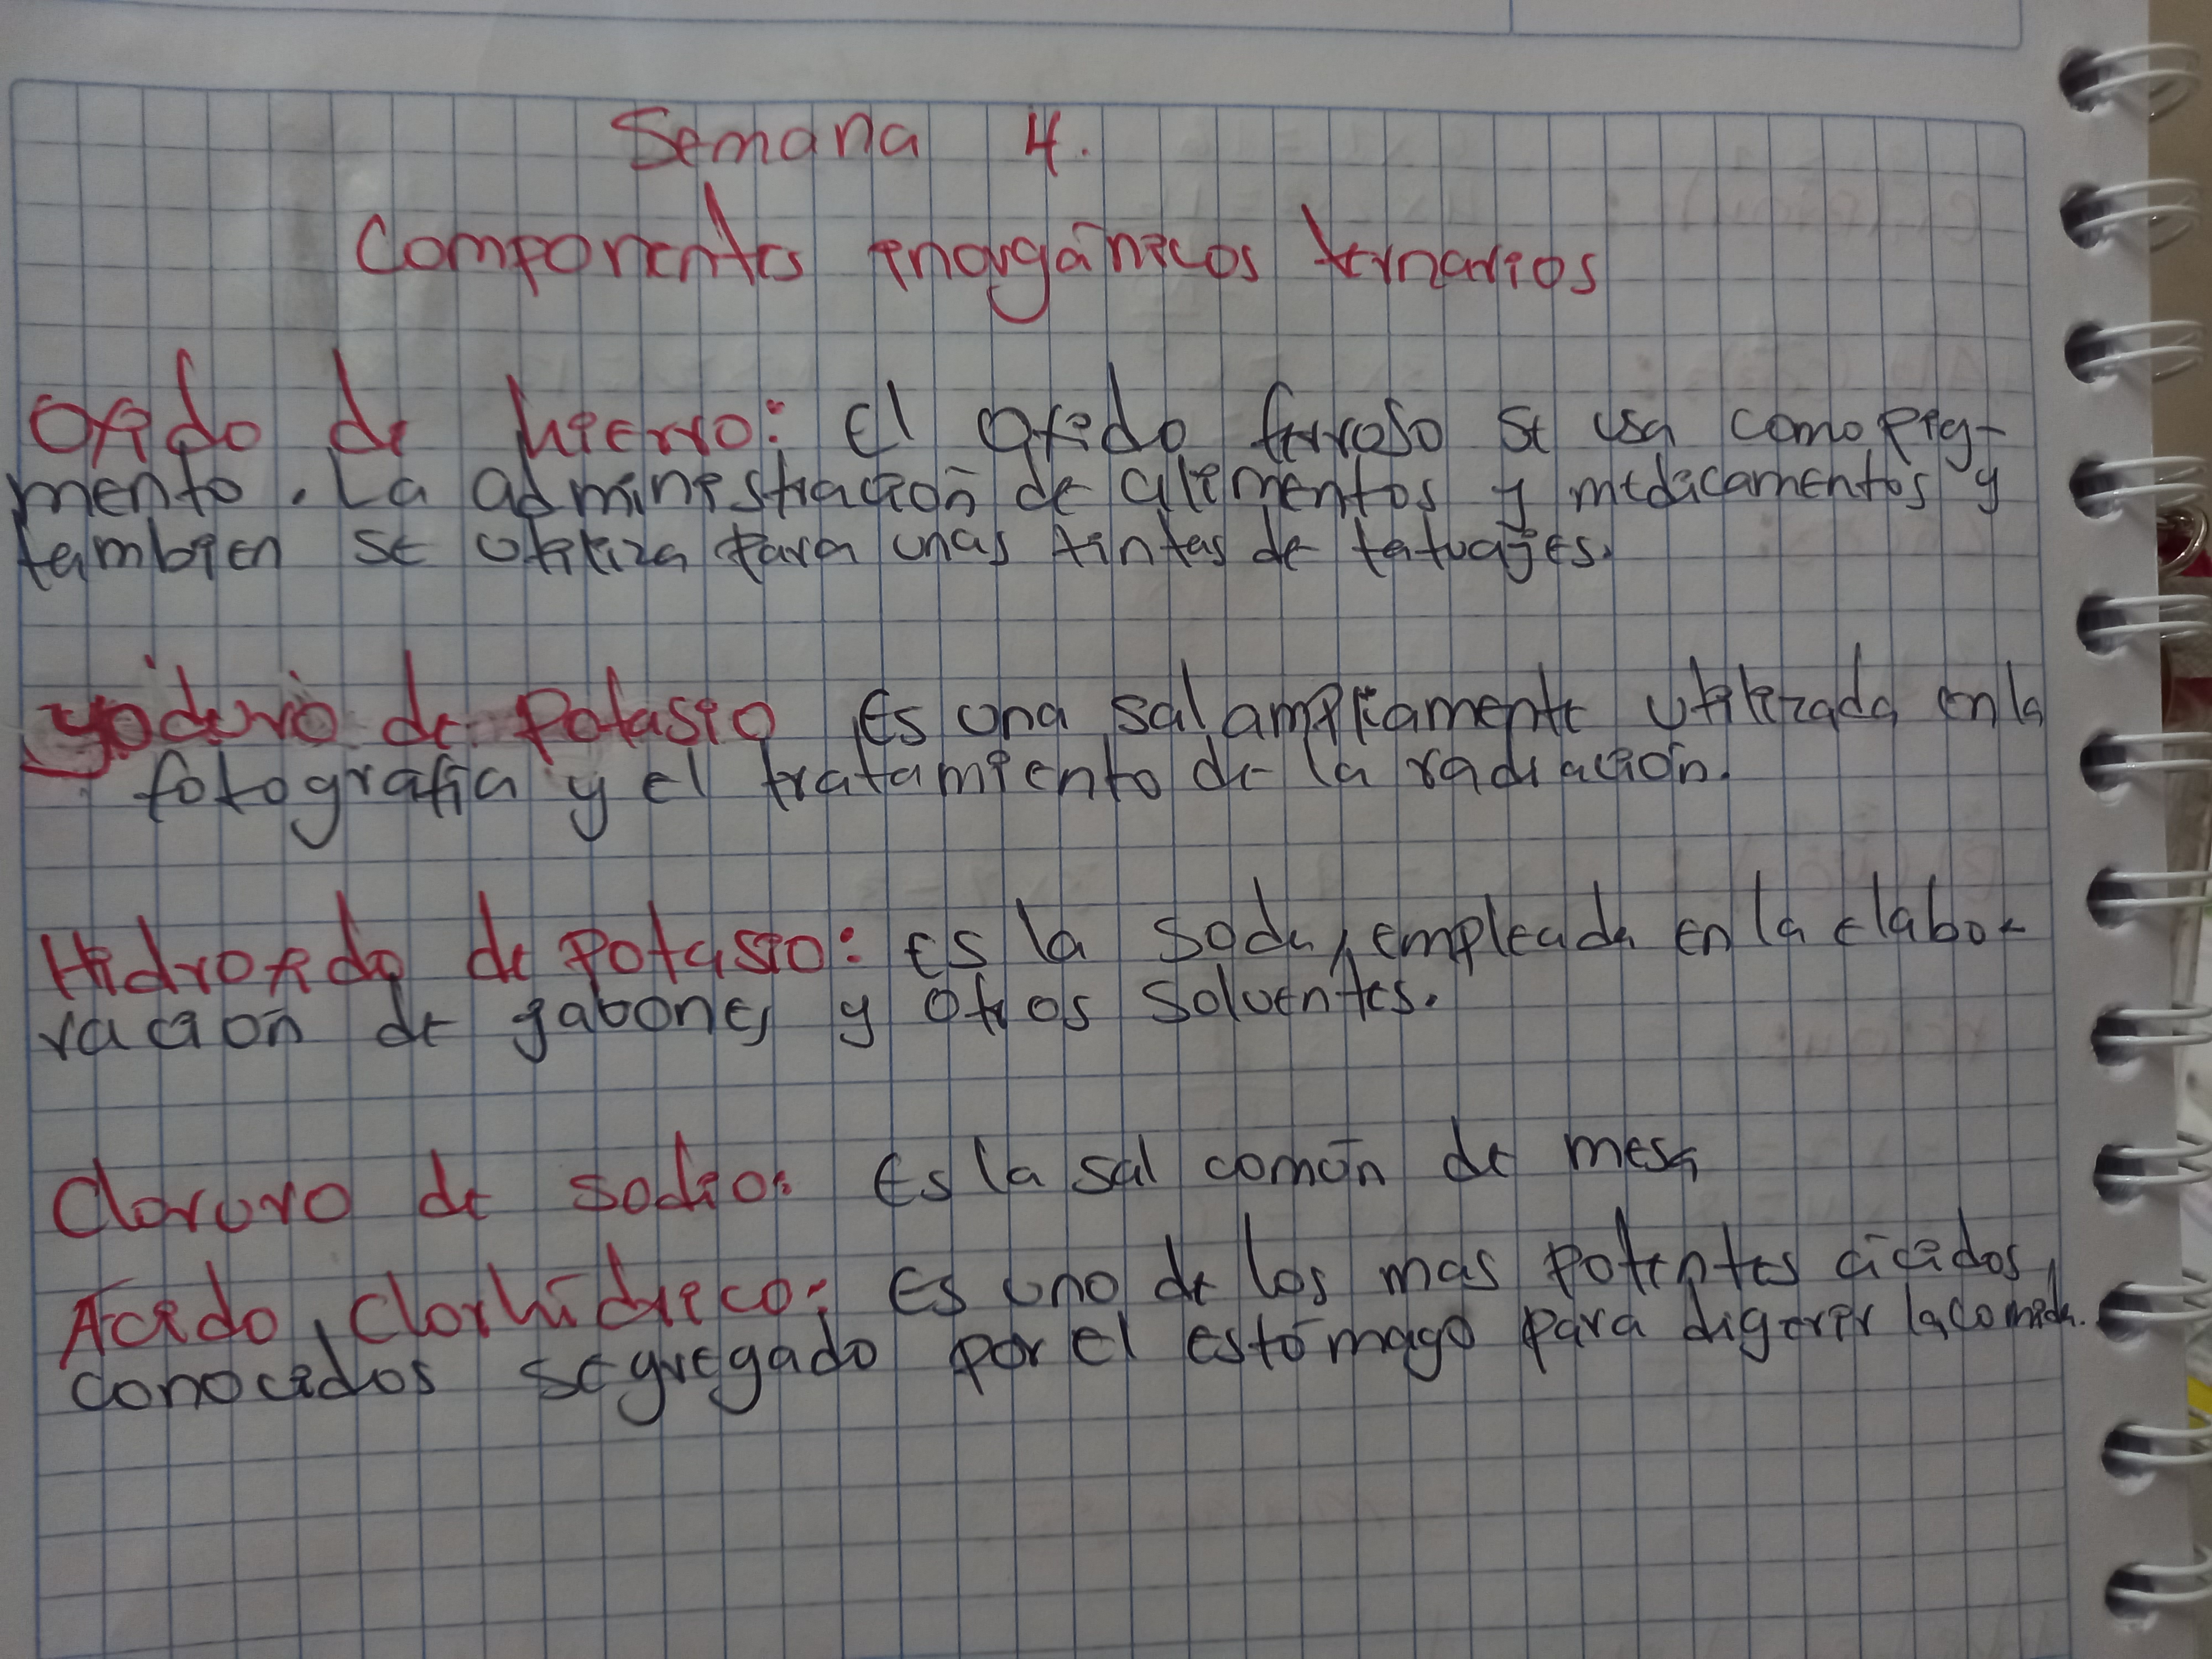 Semana 4.
Componentes inorgánicos ternarios
Oxido de hierro: El oxido ferroso se usa como pig-
mento. La administración de alimentos y medicamentos y
tambien se utiliza para unas tintas de tatuajes.
yoduro de potasio Es una sal ampliamente utilizada en la
fotografía y el tratamiento de la radiación.
Hidroxido de potasio: Es la soda, empleada en la elabo-
ración de jabones y otros solventes.
Cloruro de sodio: Es la sal común de mesa
Acido clorhídrico: Es uno de los mas potentes ácidos,
conocidos segregado por el estómago para digerir la comida.